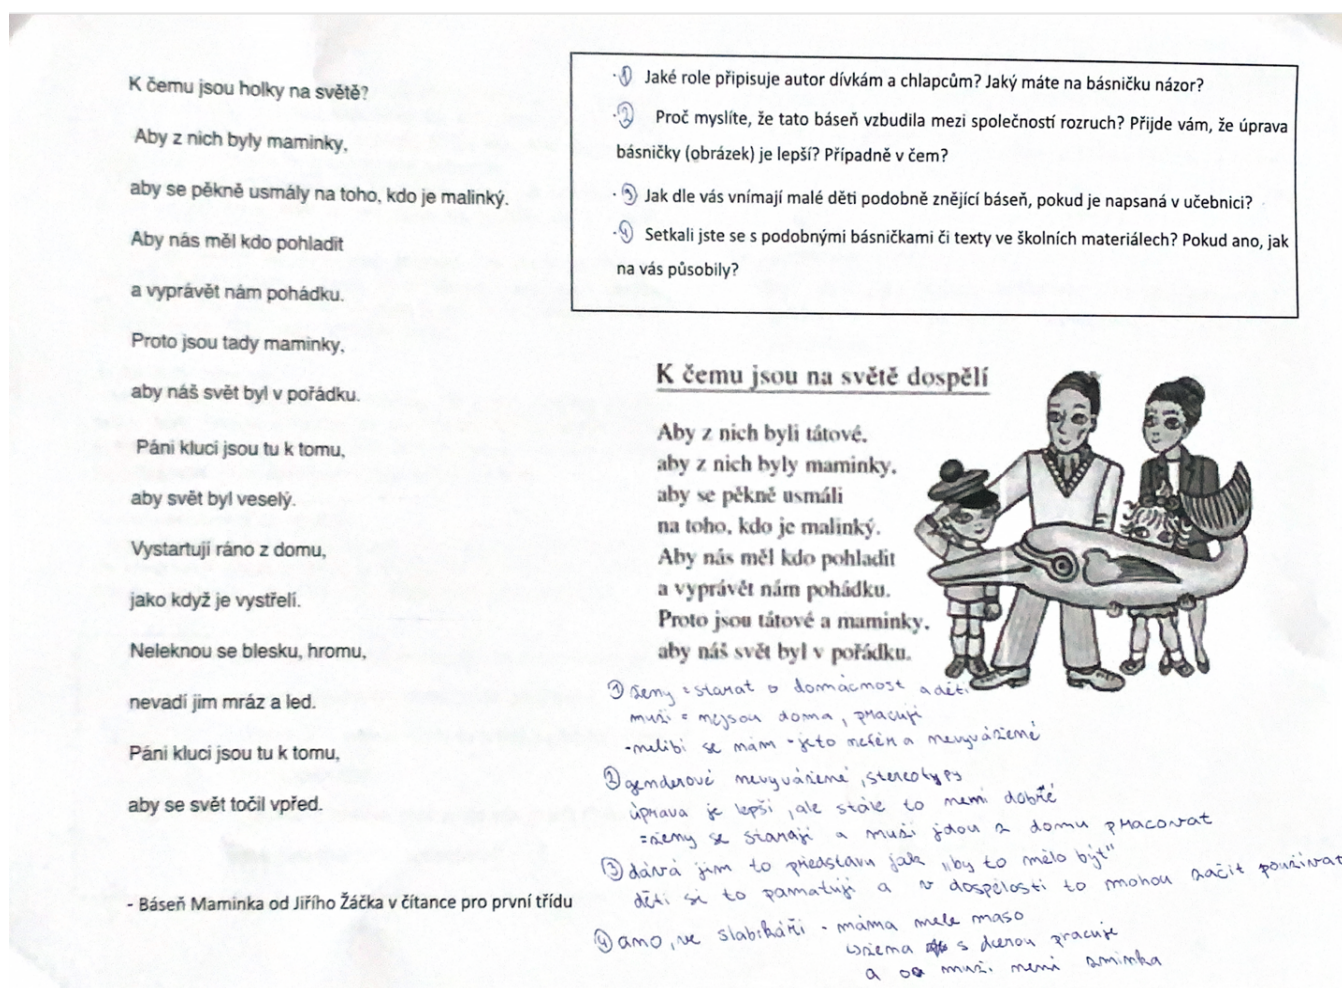 K čemu jsou holky na světě?
Aby z nich byly maminky,
aby se pěkně usmály na toho, kdo je malinký.
Aby nás měl kdo pohladit
a vyprávět nám pohádku.
Proto jsou tady maminky,
aby náš svět byl v pořádku.
Páni kluci jsou tu k tomu,
aby svět byl veselý.
Vystartují ráno z domu,
jako když je vystřelí.
Neleknou se blesku, hromu,
nevadí jim mráz a led.
Páni kluci jsou tu k tomu,
aby se svět točil vpřed.
- Báseň Maminka od Jiřího Žáčka v čítance pro první třídu
① Jaké role připisuje autor dívkám a chlapcům? Jaký máte na básničku názor?
② Proč myslíte, že tato báseň vzbudila mezi společností rozruch? Přijde vám, že úprava
básničky (obrázek) je lepší? Případně v čem?
③ Jak dle vás vnímají malé děti podobně znějící báseň, pokud je napsaná v učebnici?
④ Setkali jste se s podobnými básničkami či texty ve školních materiálech? Pokud ano, jak
na vás působily?
K čemu jsou na světě dospělí
Aby z nich byli tátové,
aby z nich byly maminky,
aby se pěkně usmáli
na toho, kdo je malinký.
Aby nás měl kdo pohladit
a vyprávět nám pohádku.
Proto jsou tátové a maminky,
aby náš svět byl v pořádku.
① ženy = starat o domácnost a děti
muži = nejsou doma, pracují
- nelíbí se nám - je to nefér a nevyvážené
② genderově nevyvážené, stereotypy
úprava je lepší, ale stále to není dobré
= ženy se starají a muži jdou z domu pracovat
③ dává jim to představu jak „by to mělo být"
děti si to pamatují a v dospělosti to mohou začít používat
④ ano, ve slabikáři - máma mele maso
žena s dcerou pracuje
a muži není zmínka